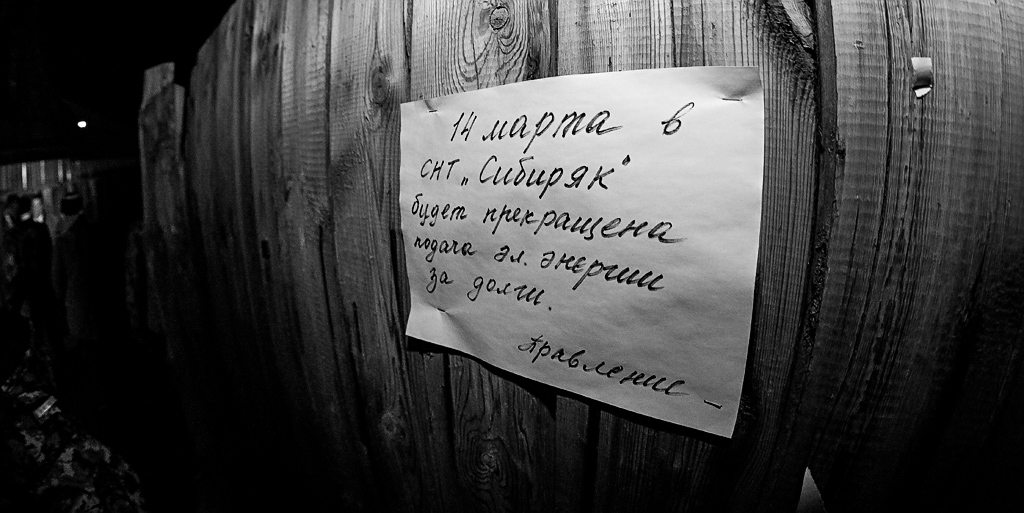 14 марта в
СНТ „Сибиряк"
будет прекращена
подача эл. энергии
за долги.
Правление